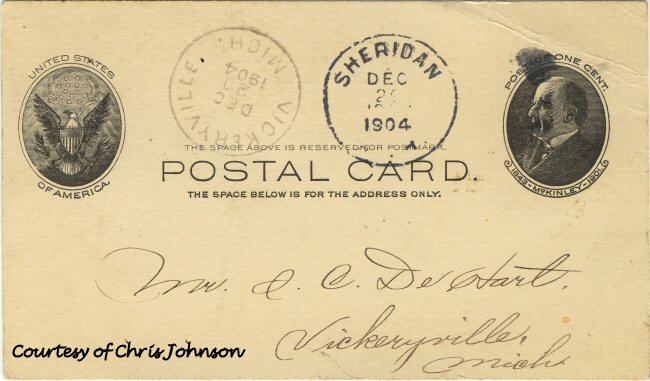 UNITED STATES
OF AMERICA.
VICKERYVILLE
MICH.
DEC
1904
SHERIDAN
DEC
1904
POSTAGE ONE CENT.
1843-McKINLEY-1901
THE SPACE ABOVE IS RESERVED FOR POSTMARK.
POSTAL CARD.
THE SPACE BELOW IS FOR THE ADDRESS ONLY.
Mr. I. C. De Hart.
Vickeryville,
Mich.
Courtesy of Chris Johnson